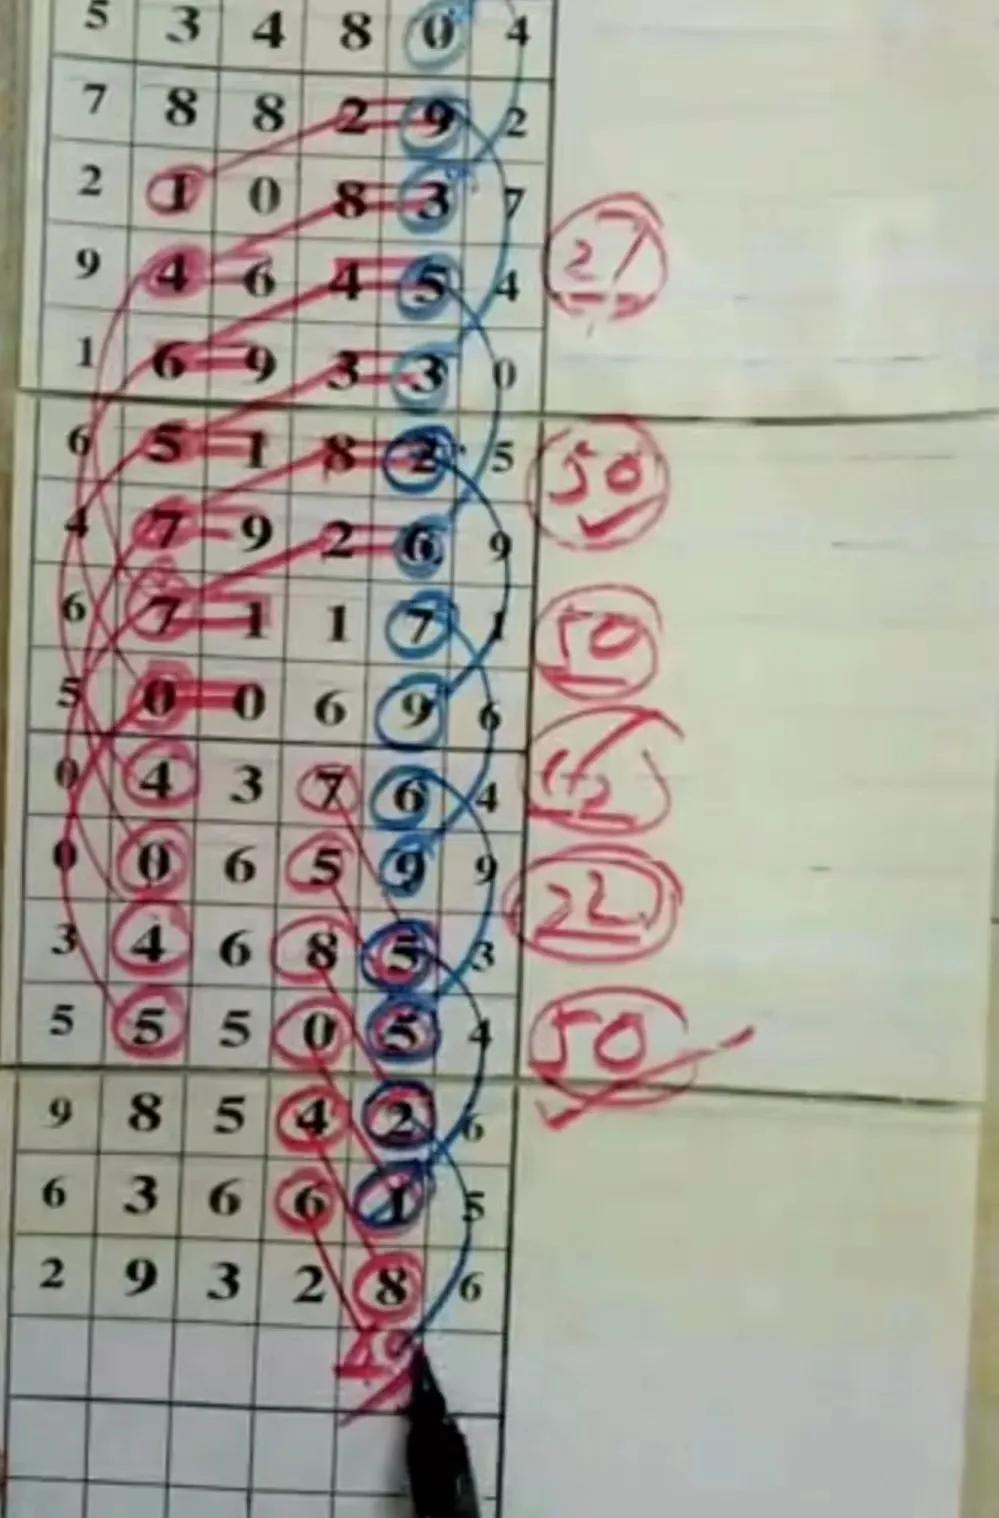 5 3 4 8 0 4
7 8 8 2 9 2
2 1 0 8 3 7
27
9 4 6 4 5 4
1 6 9 3 3 0
6 5 1 8 2 5
50
4 7 9 2 6 9
6 7 1 1 7 1
50
5 0 0 6 9 6
0 4 3 7 6 4
0 0 6 5 9 9
22
3 4 6 8 5 3
5 5 5 0 5 4
50
9 8 5 4 2 6
6 3 6 6 1 5
2 9 3 2 8 6